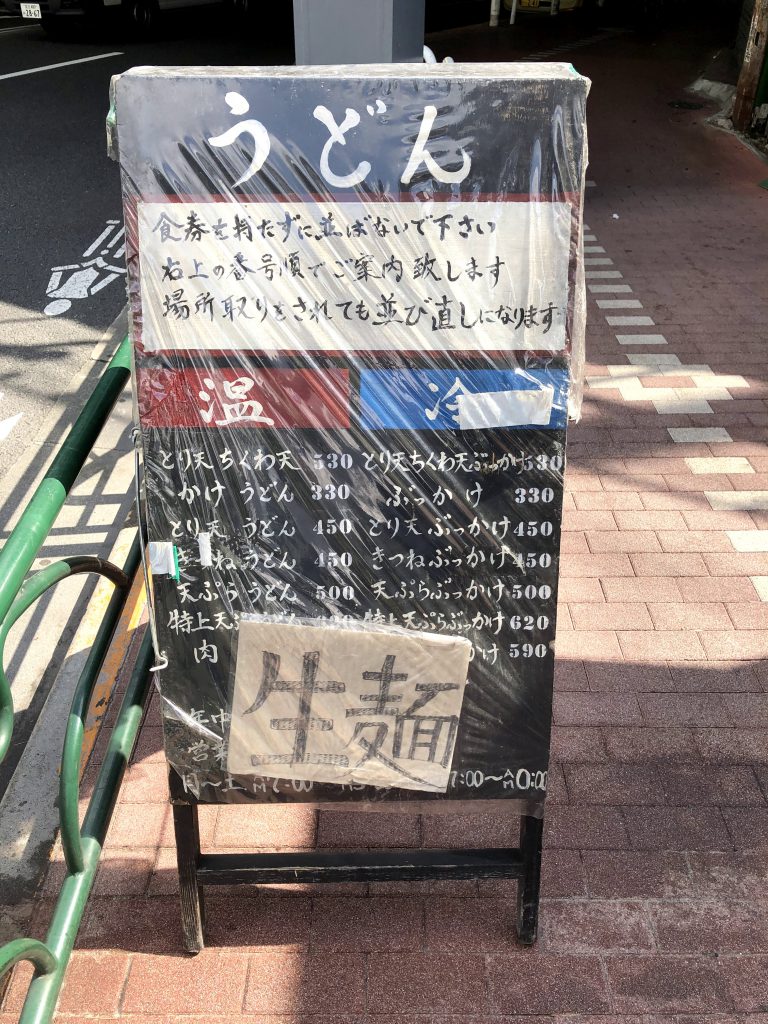 28-67
うどん
食券を持たずに並ばないで下さい
右上の番号順でご案内致します
場所取りをされても並び直しになります
温 冷
とり天ちくわ天 530 とり天ちくわ天ぶっかけ 530
かけうどん 330 ぶっかけ 330
とり天うどん 450 とり天ぶっかけ 450
きつねうどん 450 きつねぶっかけ 450
天ぷらうどん 500 天ぷらぶっかけ 500
特上天 特上天ぷらぶっかけ 620
肉 かけ 590
生麺
年中
営業
月〜土 7:00 7:00〜